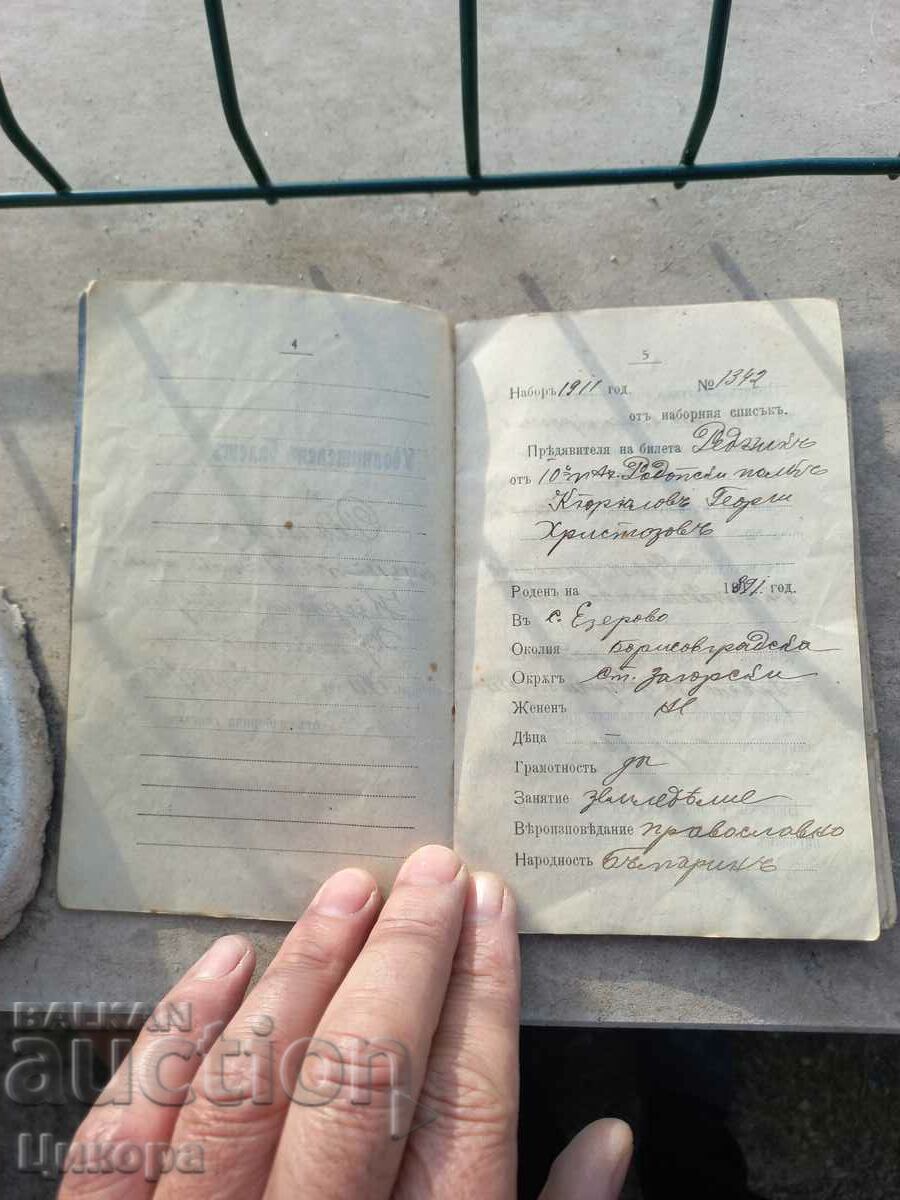 4
5
Наборъ 1911 год. № 1342
отъ наборния списъкъ.
Прѣдявителя на билета Редникъ
отъ 10й Родопски полкъ
Георги
Христозовъ
Роденъ на 1891 год.
Въ с. Езерово
Околия Борисовградска
Окрѫгъ Ст. Загорски
Жененъ Не
Дѣца —
Грамотность да
Занятие земледѣлие
Вѣроизповѣдание православно
Народность Българинъ
BALKAN
auction
Цикора